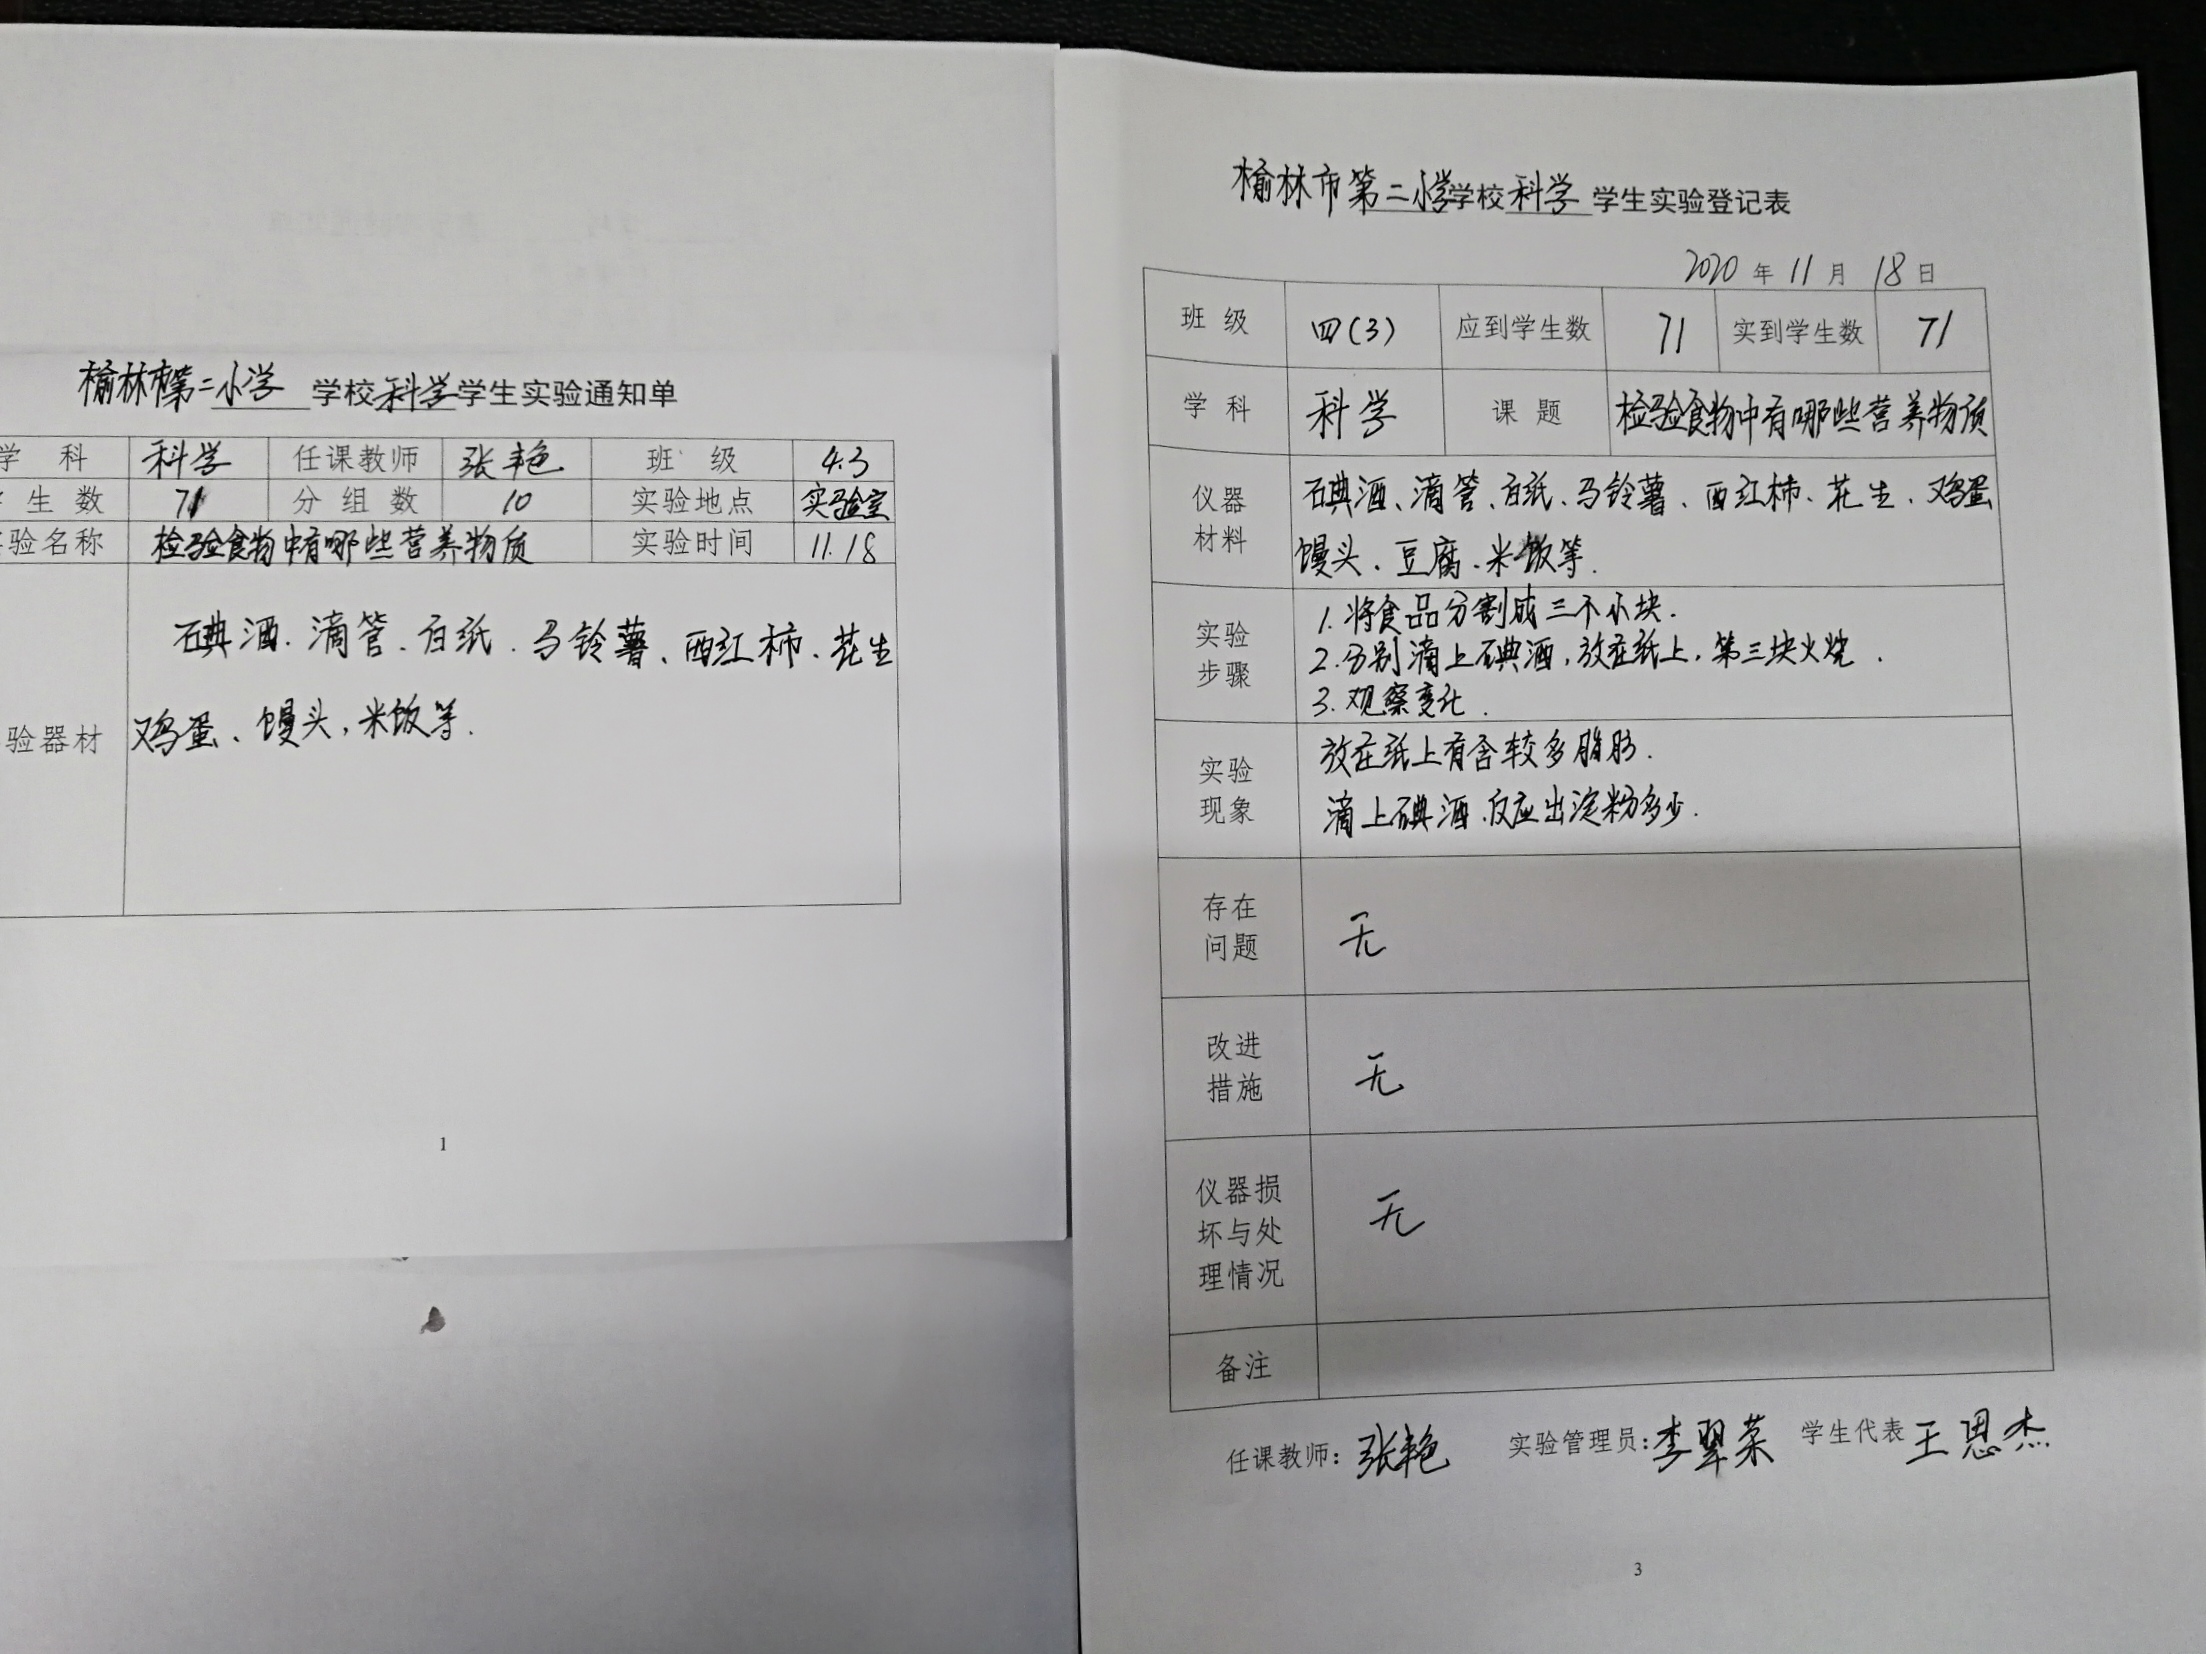 榆林市第二小学学校科学学生实验通知单
学 科 科学 任课教师 张艳 班 级 4.3
生 数 71 分 组 数 10 实验地点 实验室
验名称 检验食物中有哪些营养物质 实验时间 11.18
碘酒、滴管、白纸、马铃薯、西红柿、花生
验器材 鸡蛋、馒头,米饭等.
1
榆林市第二小学学校科学学生实验登记表
2020 年 11 月 18 日
班 级 四(3) 应到学生数 71 实到学生数 71
学 科 科学 课 题 检验食物中有哪些营养物质
仪器
材料
碘酒、滴管、白纸、马铃薯、西红柿、花生、鸡蛋
馒头、豆腐、米饭等.
实验
步骤
1. 将食品分割成三个小块.
2. 分别滴上碘酒,放在纸上,第三块火烧.
3. 观察变化.
实验
现象
放在纸上有含较多脂肪.
滴上碘酒.反应出淀粉多少.
存在
问题
无
改进
措施
无
仪器损
坏与处
理情况
无
备注
任课教师:张艳 实验管理员:李翠荣 学生代表 王恩杰
3